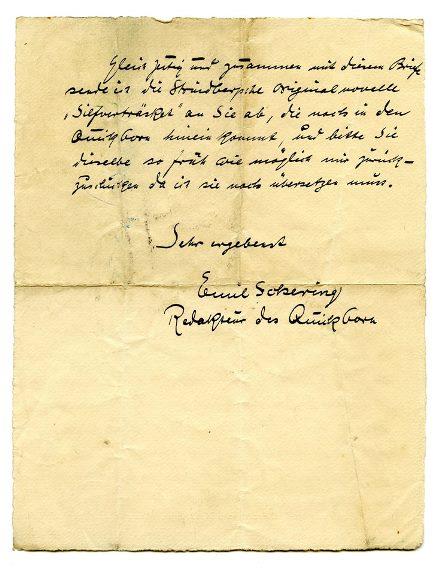 Gleichzeitig und zusammen mit diesem Briefe
sende ich die Strindbergsche Originalnovelle
„Silfverträsket" an Sie ab, die noch in den
Quickborn hinein kommt, und bitte Sie
dieselbe so früh wie möglich mir zurück-
zuschicken da ich sie noch übersetzen muss.
Sehr ergebenst
Emil Schering
Redakteur des Quickborn